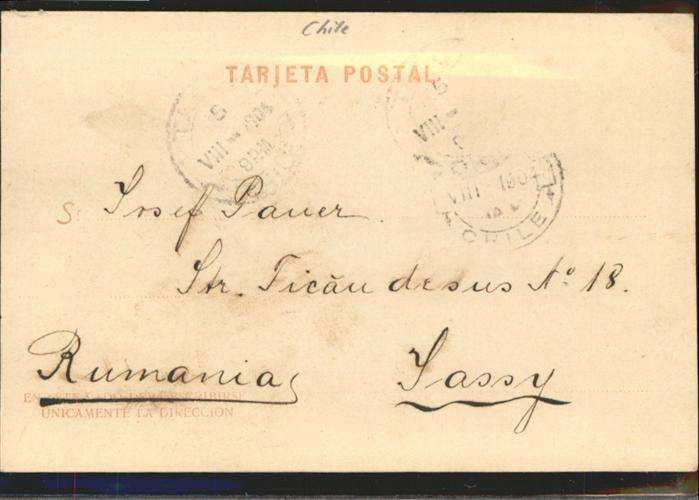 Chile
TARJETA POSTAL
5
VIII 1904
VIII 1904
CHILE
S. Josef Pauer
Str. Ticău de sus No 18.
Rumania, Jassy
UNICAMENTE LA DIRECCION